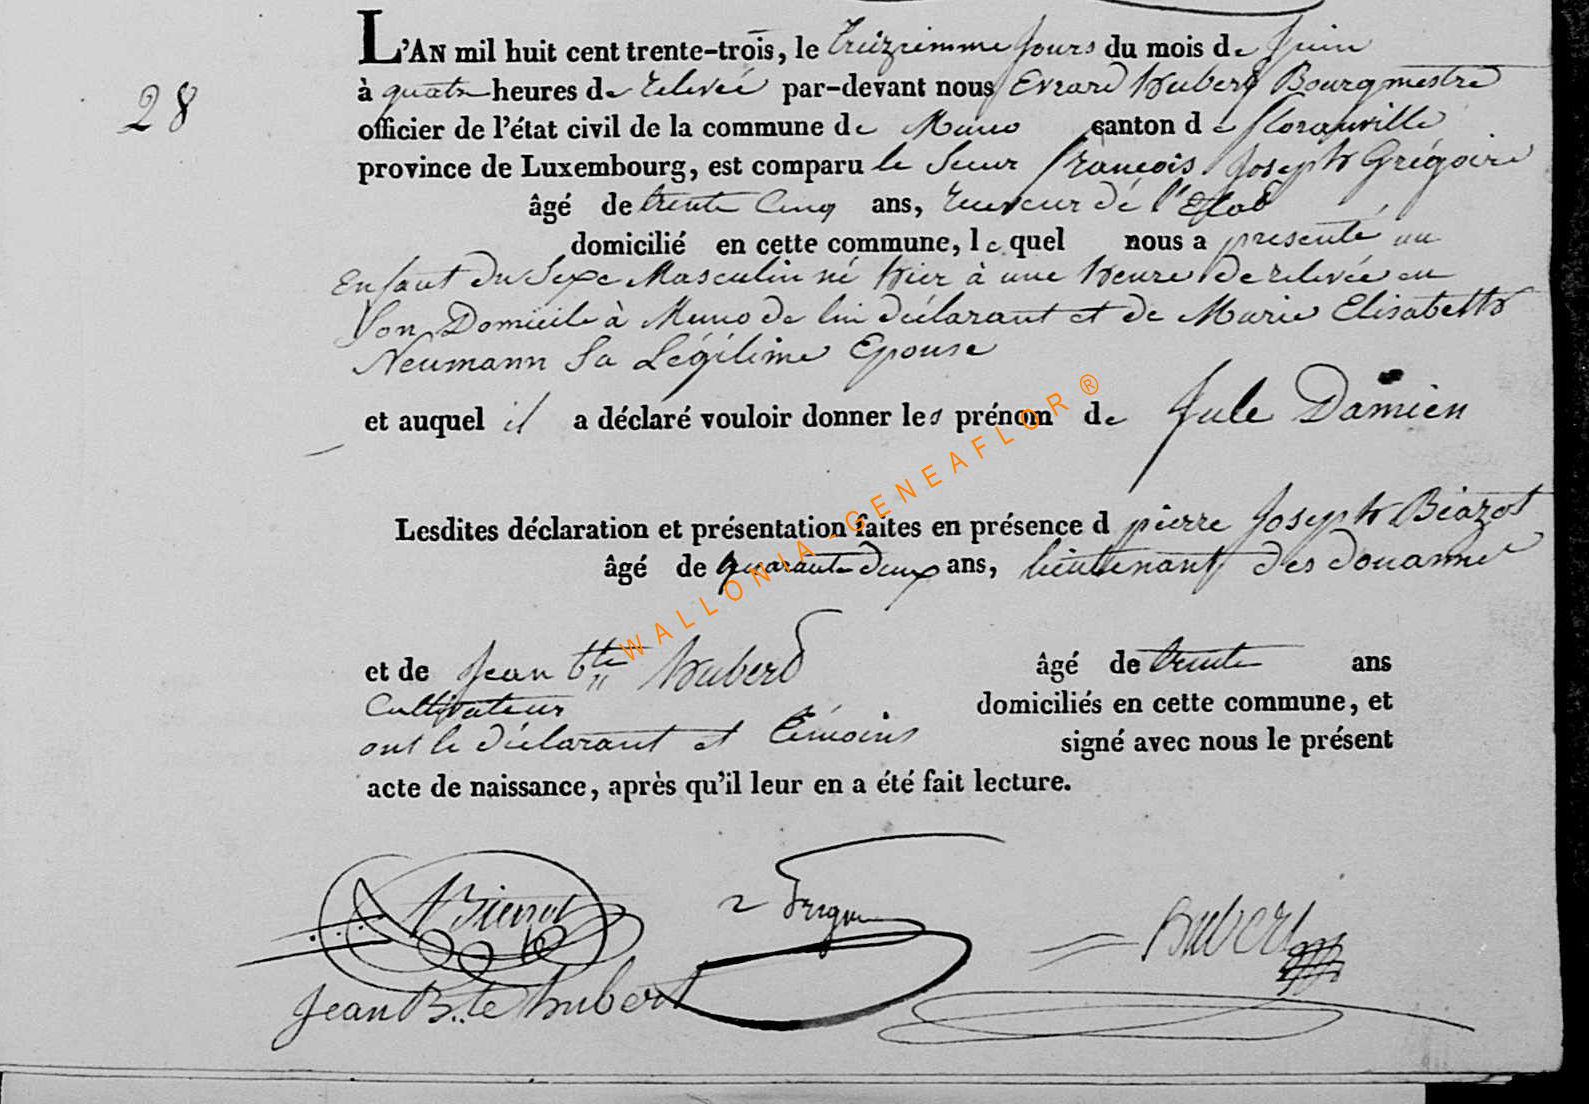 L'AN mil huit cent trente-trois, le treiziemme jours du mois de Juin
28
à quatre heures de relevée par-devant nous Evrard hubert Bourgmestre
officier de l'état civil de la commune de Muno canton de florenville
province de Luxembourg, est comparu le Sieur françois Joseph Grégoire
âgé de trente Cinq ans, receveur de l'Etat
domicilié en cette commune, lequel nous a presenté un
Enfant du Sexe Masculin né hier à une heure de relevée en
Son Domicile à Muno de lui déclarant et de Marie Elisabeth
Neumann Sa Légitime Epouse
et auquel il a déclaré vouloir donner les prénom de Jule Damien
Lesdites déclaration et présentation faites en présence d pierre Joseph
âgé de quarante deux ans, lieutenant des douanne
et de Jean bte hubert âgé de trente ans
Cultivateur domiciliés en cette commune, et
ont le déclarant et témoins signé avec nous le présent
acte de naissance, après qu'il leur en a été fait lecture.
hubert
Jean B.te hubert
WALLONIA-GENEAFLOR®